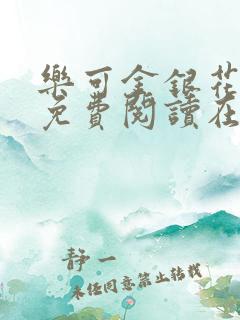 樂可金銀花
免費閱讀在
靜一
未經同意禁止轉載